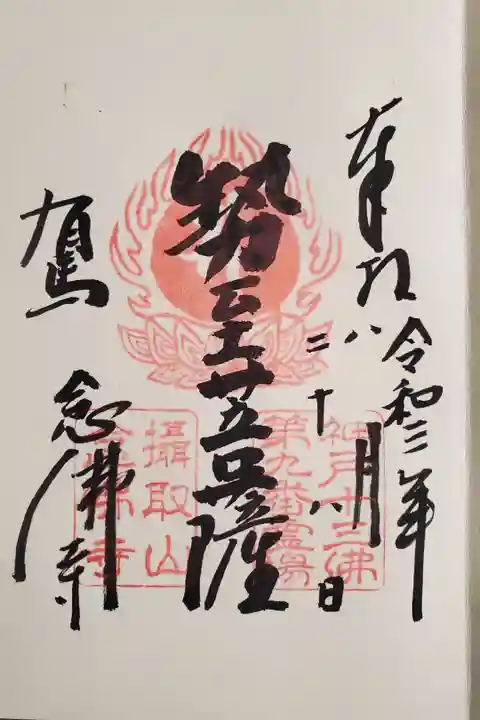 奉拝
令和三年
八月
二十八日
勢至菩薩
有馬
念佛寺
神戸十三佛
第九番霊場
攝取山
念佛寺